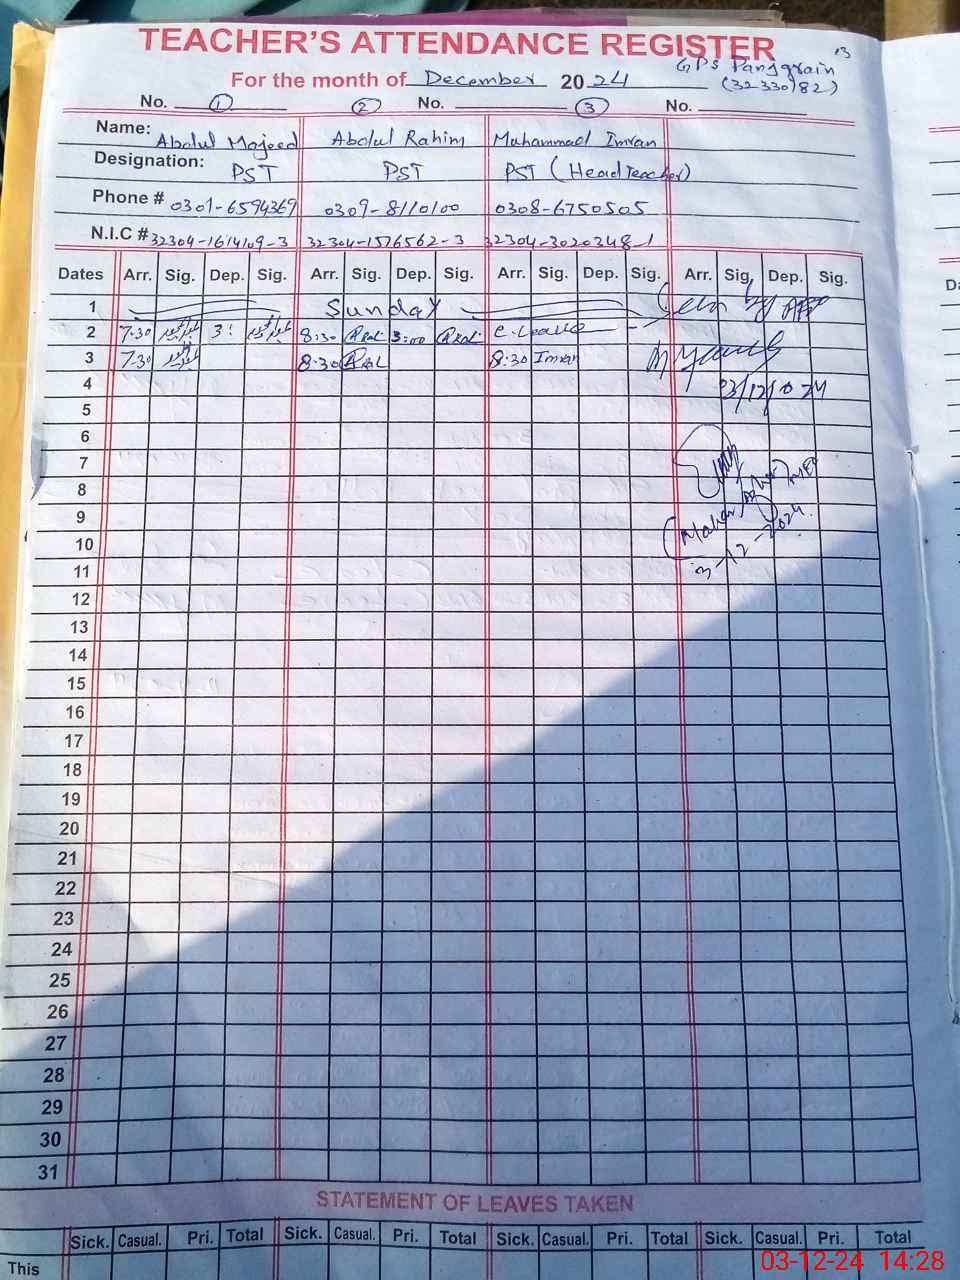 TEACHER'S ATTENDANCE REGISTER
13
GPS Panjgrain
For the month of December 2024
(32330182)
No. 1 2 No. 3 No.
Name: Abdul Majeed Abdul Rahim Muhammad Imran
Designation: PST PST PST (Head Teacher)
Phone # 0301-6594369 0309-8110100 0308-6750505
N.I.C # 32304-1614109-3 32304-1576562-3 32304-3020348-1
Dates Arr. Sig. Dep. Sig. Arr. Sig. Dep. Sig. Arr. Sig. Dep. Sig. Arr. Sig. Dep. Sig.
1 Sunday Seen by
2 7.30 3: 8:30 3:00 c.Leave
3 7.30 8.30 8.30 Imran
4 03/12/2024
5
6
7
8
9
10
3-12-2024
11
12
13
14
15
16
17
18
19
20
21
22
23
24
25
26
27
28
29
30
31
STATEMENT OF LEAVES TAKEN
Sick. Casual. Pri. Total Sick. Casual. Pri. Total Sick. Casual. Pri. Total Sick. Casual. Pri. Total
This
03-12-24 14:28